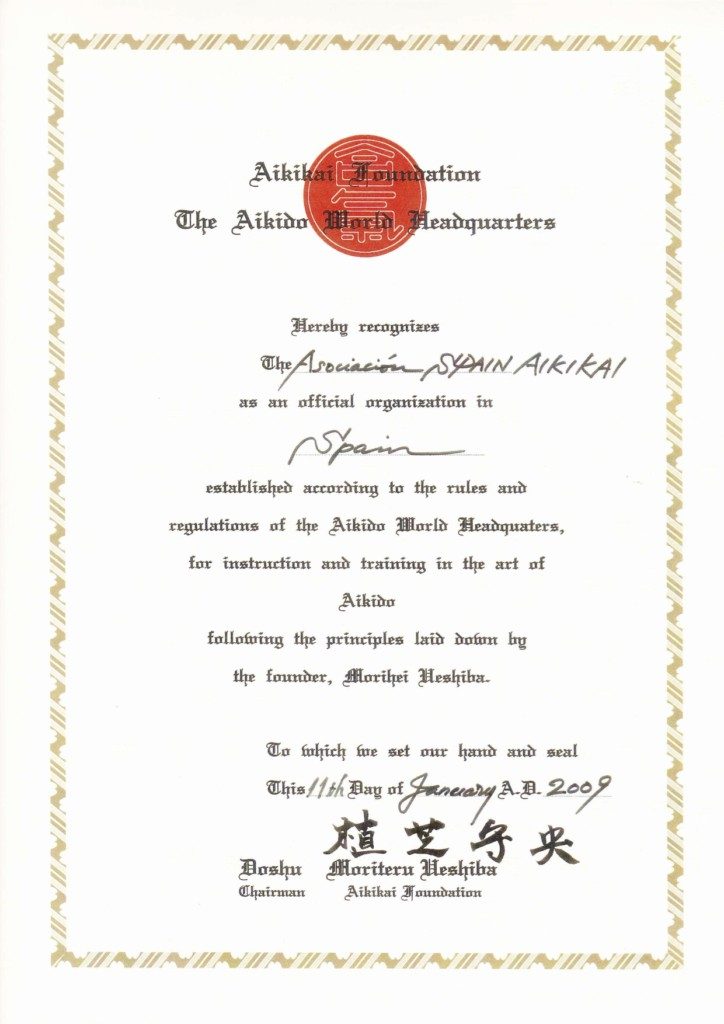 Aikikai Foundation
The Aikido World Headquarters
Hereby recognizes
The Asociación SPAIN AIKIKAI
as an official organization in
Spain
established according to the rules and
regulations of the Aikido World Headquaters,
for instruction and training in the art of
Aikido
following the principles laid down by
the founder, Morihei Ueshiba.
To which we set our hand and seal
This 11th Day of January A.D. 2009
植芝守央
Doshu Moriteru Ueshiba
Chairman Aikikai Foundation